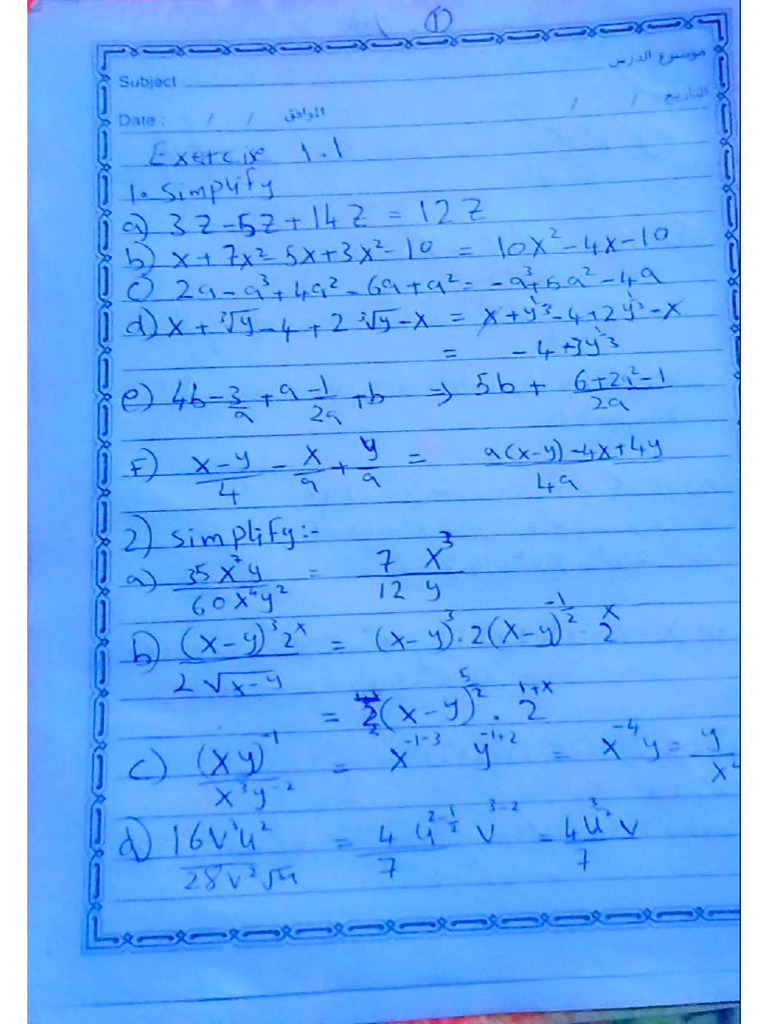 ①
موضوع الدرس
Subject
التاريخ / / الموافق / / Date :
Exercise 1.1
1. Simplify
a) 3z-5z+14z = 12z
b) x+7x²-5x+3x²-10 = 10x²-4x-10
c) 2a-a³+4a²-6a+a² = -a³+5a²-4a
d) x+∛y-4+2∛y-x = x+y^(1/3)-4+2y^(1/3)-x
= -4+3y^(1/3)
e) 4b-3/a+a-1/2a+b ⇒ 5b+ (6+2a²-1)/2a
F) (x-y)/4 - x/a + y/a = (a(x-y)-4x+4y)/4a
2) simplify:-
a) 35x⁷y/60x⁴y² = 7x³/12y
b) (x-y)³2^x/2√(x-y) = (x-y)³·2(x-y)^(-1/2) 2^x
= (x-y)^(5/2) · 2^(1+x)
c) (xy)^-1/x³y^-2 = x^(-1-3) y^(-1+2) = x^-4 y = y/x⁴
d) 16v³u²/28v²√u = 4/7 u^(2-1/2) v^(3-2) = 4u^(3/2)v/7